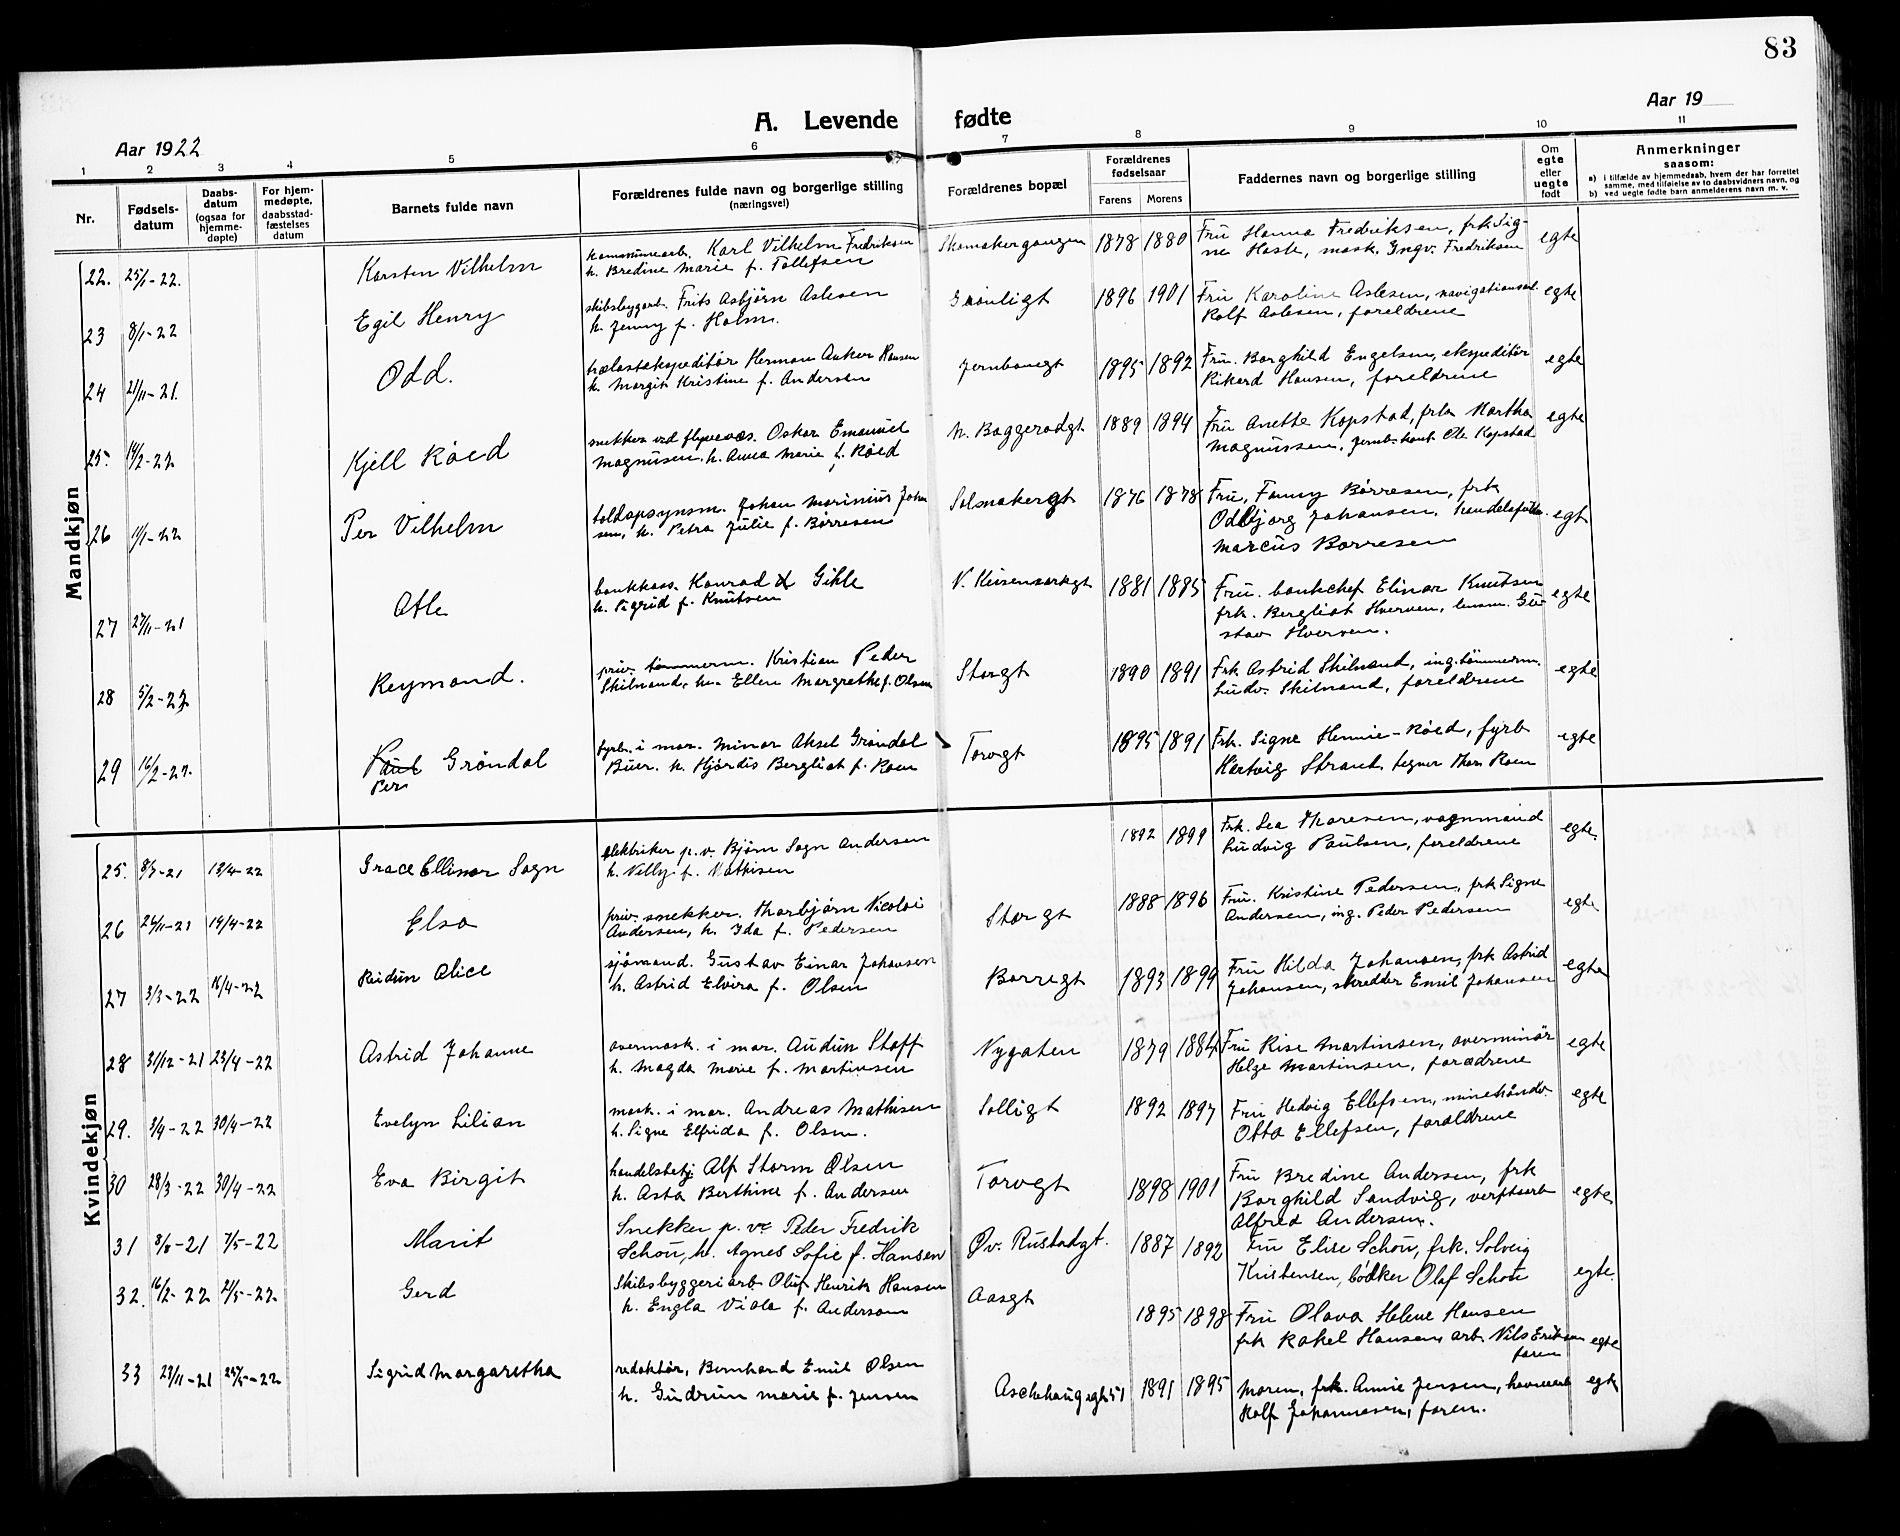 83
A. Levende fødte
Aar 1922
Aar 19
1 2 3 4 5 6 7 8 9 10 11
Nr.
Fødsels-
datum
Daabs-
datum
(ogsaa for
hjemme-
døpte)
For hjem-
medøpte,
daabsstad-
fæstelses
datum
Barnets fulde navn
Forældrenes fulde navn og borgerlige stilling
(næringsvei)
Forældrenes bopæl
Forældrenes
fødselsaar
Farens Morens
Faddernes navn og borgerlige stilling
Om
egte
eller
uegte
født
Anmerkninger
saasom:
a) i tilfælde av hjemmedaab, hvem der har forrettet
samme, med tilføielse av to daabsvidners navn, og
b) ved uegte fødte barn anmelderens navn m. v.
Mandkjøn
22. 25/1-22. Karsten Vilhelm
kommunearb. Karl Vilhelm Fredriksen
h. Bredine Marie f. Tollefsen
Skomakergangen 1878 1880
Fru Hanna Fredriksen, frk Sig-
ne Hasle, mask. Ingv. Fredriksen
egte
23 8/1-22 Egil Henry
skibsbyggarb. Frits Asbjørn Aslesen
h. Jenny f. Holm.
Grønligt 1896 1901
Fru Karoline Aslesen, navigationsel.
Rolf Aslesen, foreldrene
egte
24 21/11-21. Odd.
trælastekspeditør Herman Anker Hansen
h. Margit Kristine f. Andersen
Jernbanegt 1895 1892
Fru. Borghild Engelsen, ekspeditør
Rikard Hansen, foreldrene
egte
25. 14/2-22 Kjell Røed
snekker ved flyvevæs. Oskar Emanuel
Magnusen. h. Anna Marie f. Røed
N. Baggerødgt 1889 1894
Fru Anette Kopstad, frk Martha
Magnussen, jernb. kont Ole Kopstad
egte
26 11/1-22 Per Vilhelm
toldopsynsm. Johan Marinius Johan
sen, h. Petra Julie f. Børresen
Salmakergt 1876 1878
Fru, Fanny Børresen, frk
Oddbjørg Johansen, handelsfullm.
Marcus Børresen
egt
27 27/11-21 Atle
bankkass. Konrad Gihle
h. Sigrid f. Knutsen
V. Keisemarkgt 1881 1885
Fru. bankchef Elinar Knutsen
frk. Bergliot Hverven, lensm. Gu-
stav Hverven.
egte
28 5/2-22 Reymond.
priv. tømmerm. Kristian Peder
Skilnand, h. Ellen Margrethe f. Olsen
Storgt 1890 1891
Frk Astrid Skilnand, ing. tømmerm.
Ludv. Skilnand, foreldrene
egte
29 16/2-22. Paul Grøndal
Per
fyrb. i mar. Minor Aksel Grøndal
Buer. h. Hjørdis Bergliot f. Roen
Torvgt 1895 1891
Frk. Signe Hennie-Røed, fyrb
Hartvig Strant, tegner Thor Roen
egte
Kvindekjøn
25. 8/3-21 13/4-22 Grace Ellinor Sogn
elektriker p. v. Bjørn Sogn Andersen
h. Nelly f. Mathisen
1892 1899
Frk. Lea Thoresen, vognmand
Ludvig Paulsen, foreldrene
egte.
26 26/11-21 14/4-22 Elsa
priv. snekker. Thorbjørn Nicolai
Andersen, h. Ida f. Pedersen
Storgt 1888 1896
Fru. Kristine Pedersen, frk Signe
Andersen, ing. Peder Pedersen
egte
27 3/3-22 16/4-22 Reidun Alice
sjømand. Gustav Einar Johansen
h. Astrid Elvira f. Olsen
Borregt 1893 1899
Fru Hilda Johansen, frk Astrid
Johansen, skredder Emil Johansen
egte
28 31/12-21 23/4-22 Astrid Johanne
overmask. i mar. Audun Stoff
h. Magda Marie f. Martinsen
Nygaten 1879 1884
Fru Rise Martinsen, overminør
Helge Martinsen, foreldrene
egte
29. 3/4-22 30/4-22 Evelyn Lilian
mask. i mar. Andreas Mathisen
h. Signe Elfrida f. Olsen.
Solligt 1892 1897
Fru Hedvig Ellefsen, minehåndv.
Otto Ellefsen, foreldrene
egte
30 28/3-22 30/4-22 Eva Birgit
handelsbetj Alf Storm Olsen
h. Asta Berthine f. Andersen
Torvgt 1898 1901
Fru Bredine Andersen, frk
Borghild Sandvig, verftsarb
Alfred Andersen.
egte
31 8/8-21 7/5-22 Marit
Snekker p. v. Peder Fredrik
Schou, h. Agnes Sofie f. Hansen
Øv. Rustadgt. 1887 1892
Fru Elise Schou, frk. Solveig
Kristensen, bødker Olaf Schou
egte.
32. 16/2-22 21/5-22. Gerd
Skibsbyggeriarb Oluf Henrik Hansen
h. Engla Viola f. Anderson
Aasgt 1895 1898
Fru Olava Helene Hansen
frk Rakel Hansen, arb Nils Eriksen
faren
egte
33 23/11-21 25/5-22 Sigrid Margaretha
redaktør, Bernhard Emil Olsen
h. Gudrun Marie f. Jensen
Aschehougsgt 51 1891 1895
Moren, frk. Annie Jensen,
Rolf Johannesen, faren.
egte